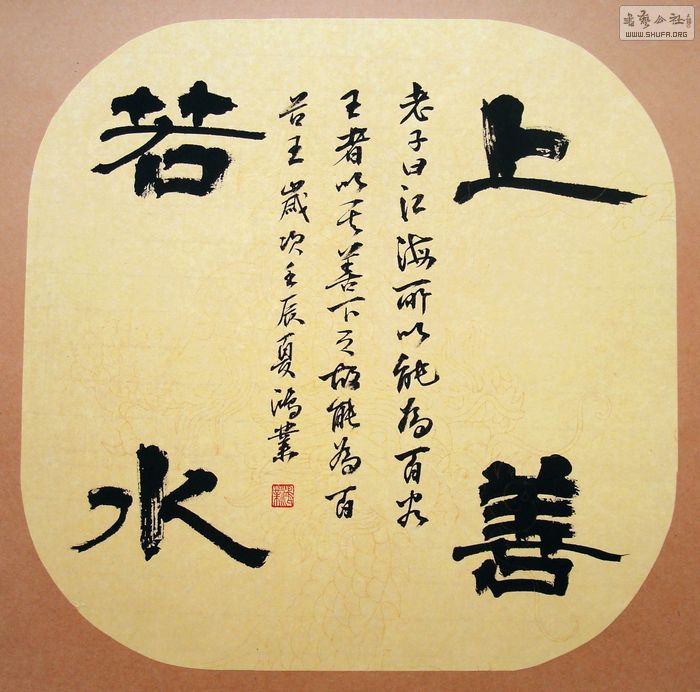 上善
老子曰江海所以能為百谷
王者以其善下之故能為百
谷王歲次壬辰夏鴻業
若水
書藝公社
WWW.SHUFA.ORG